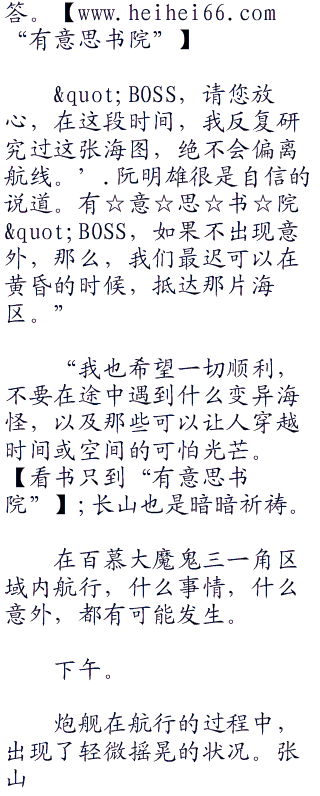 答。【www.heihei66.com
“有意思书院”】
&quot;BOSS，请您放
心，在这段时间，我反复研
究过这张海图，绝不会偏离
航线。’.阮明雄很是自信的
说道。有☆意☆思☆书☆院
&quot;BOSS，如果不出现意
外，那么，我们最迟可以在
黄昏的时候，抵达那片海
区。”
“我也希望一切顺利，
不要在途中遇到什么变异海
怪，以及那些可以让人穿越
时间或空间的可怕光芒。
【看书只到“有意思书
院”】;长山也是暗暗祈祷。
在百慕大魔鬼三一角区
域内航行，什么事情，什么
意外，都有可能发生。
下午。
炮舰在航行的过程中，
出现了轻微摇晃的状况。张
山